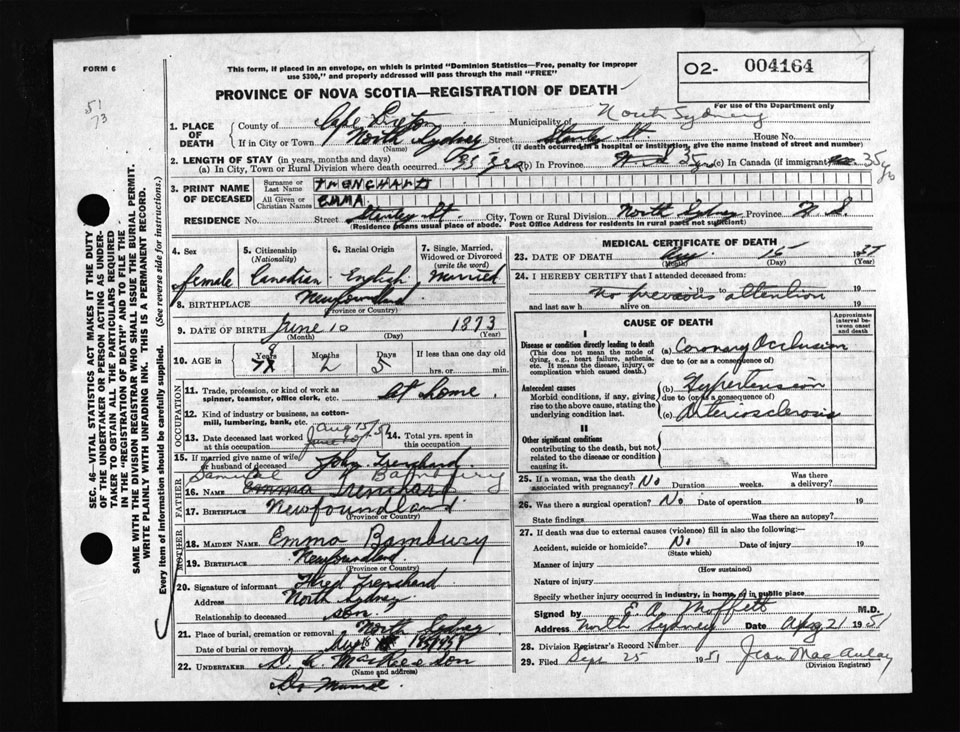 FORM 6
51
73
This form, if placed in an envelope, on which is printed "Dominion Statistics—Free, penalty for improper
use $300," and properly addressed will pass through the mail "FREE"
O2- 004164
PROVINCE OF NOVA SCOTIA—REGISTRATION OF DEATH
For use of the Department only
North Sydney
1. PLACE OF DEATH
County of Cape Breton Municipality of
If in City or Town North Sydney Street Stanley St. House No.
(Name) (If death occurred in a hospital or institution, give the name instead of street and number)
2. LENGTH OF STAY (in years, months and days)
(a) In City, Town or Rural Division where death occurred 35 yrs (b) In Province 35 yrs (c) In Canada (if immigrant) 35 yrs
3. PRINT NAME OF DECEASED
Surname or Last Name TRENCHARD
All Given or Christian Names EMMA
RESIDENCE No. Street Stanley St. City, Town or Rural Division North Sydney Province N. S.
(Residence means usual place of abode. Post Office Address for residents in rural parts not sufficient)
4. Sex female
5. Citizenship (Nationality) Canadian
6. Racial Origin English
7. Single, Married, Widowed or Divorced (write the word) Married
8. BIRTHPLACE Newfoundland
(Province or Country)
9. DATE OF BIRTH June 10 1873
(Month) (Day) (Year)
10. AGE in Years Months 2 Days 5 If less than one day old
hrs. or min.
OCCUPATION
11. Trade, profession, or kind of work as spinner, teamster, office clerk, etc. at home.
12. Kind of industry or business, as cotton-mill, lumbering, bank, etc.
13. Date deceased last worked at this occupation Aug 15/51
14. Total yrs. spent in this occupation
15. If married give name of wife or husband of deceased John Trenchard
FATHER
Samuel Bambury
16. NAME Emma Trenchard
17. BIRTHPLACE Newfoundland
(Province or Country)
MOTHER
18. MAIDEN NAME Emma Bambury
19. BIRTHPLACE Newfoundland
(Province or Country)
20. Signature of informant Trenchard
Address North Sydney
Relationship to deceased son.
21. Place of burial, cremation or removal North Sydney
Date of burial or removal Aug 1951
22. UNDERTAKER
(Name and address)
MEDICAL CERTIFICATE OF DEATH
23. DATE OF DEATH Aug 15 19
(Month) (Day) (Year)
24. I HEREBY CERTIFY that I attended deceased from
no previous 19 attention 19
and last saw h alive on 19
CAUSE OF DEATH
Approximate interval between onset and death
I
Disease or condition directly leading to death
(This does not mean the mode of dying, e.g., heart failure, asthenia, etc. It means the disease, injury, or complication which caused death.)
(a) Coronary Occlusion
due to (or as a consequence of)
Antecedent causes
Morbid conditions, if any, giving rise to the above cause, stating the underlying condition last.
(b) Hypertension
due to (or as a consequence of)
(c) Arteriosclerosis
II
Other significant conditions
contributing to the death, but not related to the disease or condition causing it.
25. If a woman, was the death associated with pregnancy? No Duration weeks. Was there a delivery?
26. Was there a surgical operation? No Date of operation 19
State findings Was there an autopsy?
27. If death was due to external causes (violence) fill in also the following:
Accident, suicide or homicide? No Date of injury 19
(State which)
Manner of injury
(How sustained)
Nature of injury
Specify whether injury occurred in industry, in home, or in public place
Signed by E. A. Moffett M.D.
Address North Sydney Date Aug 21 1951
28. Division Registrar's Record Number
29. Filed Sept 25 1951 Jean MacAulay
(Division Registrar)
SEC. 46—VITAL STATISTICS ACT MAKES IT THE DUTY
OF THE UNDERTAKER OR PERSON ACTING AS UNDERTAKER
TO OBTAIN ALL THE PARTICULARS REQUIRED
IN THE "REGISTRATION OF DEATH" AND TO FILE THE
SAME WITH THE DIVISION REGISTRAR WHO SHALL ISSUE THE BURIAL PERMIT.
WRITE PLAINLY WITH UNFADING INK. THIS IS A PERMANENT RECORD.
Every item of information should be carefully supplied. (See reverse side for instructions.)